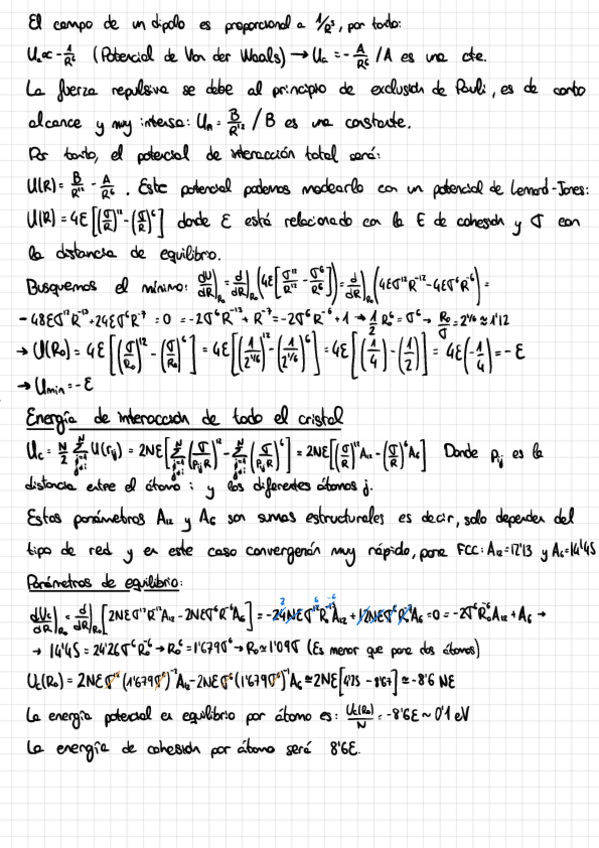 El campo de un dipolo es proporcional a 1/R³, por tanto:
Uₐ ∝ -1/R⁶ (Potencial de Van der Waals) → Uₐ = -A/R⁶ / A es una cte.
La fuerza repulsiva se debe al principio de exclusión de Pauli, es de corto
alcance y muy intensa: U_R = B/R¹² / B es una constante.
Por tanto, el potencial de interacción total será:
U(R) = B/R¹² - A/R⁶. Este potencial podemos modearlo con un potencial de Lennard-Jones:
U(R) = 4Ɛ[(σ/R)¹² - (σ/R)⁶] donde Ɛ está relacionado con la E de cohesión y σ con
la distancia de equilibrio.
Busquemos el mínimo: dU/dR|_R₀ = d/dR|_R₀ (4Ɛ[σ¹²/R¹² - σ⁶/R⁶]) = d/dR|_R₀ (4Ɛσ¹²R⁻¹² - 4Ɛσ⁶R⁻⁶) =
-48Ɛσ¹²R⁻¹³ + 24Ɛσ⁶R⁻⁷ = 0 = -2σ⁶R⁻¹³ + R⁻⁷ = -2σ⁶R⁻⁶ + 1 → 1/2 R₀⁶ = σ⁶ → R₀/σ = 2^1/6 ≈ 1'12
→ U(R₀) = 4Ɛ[(σ/R₀)¹² - (σ/R₀)⁶] = 4Ɛ[(1/2^1/6)¹² - (1/2^1/6)⁶] = 4Ɛ[(1/4) - (1/2)] = 4Ɛ(-1/4) = -Ɛ
→ U_min = -Ɛ
Energía de interacción de todo el cristal
U_c = N/2 Σ U(r_ij) = 2NƐ[Σ (σ/p_ij R)¹² - Σ (σ/p_ij R)⁶] = 2NƐ[(σ/R)¹² A₁₂ - (σ/R)⁶ A₆] Donde p_ij es la
distancia entre el átomo i y los diferentes átomos j.
Estos parámetros A₁₂ y A₆ son sumas estructurales es decir, solo dependen del
tipo de red y en este caso convergerán muy rápido, para FCC: A₁₂ = 12'13 y A₆ = 14'45
Parámetros de equilibrio:
dU_c/dR|_R₀ = d/dR|_R₀ [2NƐσ¹²R⁻¹²A₁₂ - 2NƐσ⁶R⁻⁶A₆] = -24NƐσ¹²R⁻¹³A₁₂ + 12NƐσ⁶R⁻⁷A₆ = 0 = -2σ⁶R₀⁻⁶A₁₂ + A₆ →
→ 14'45 = 24'26σ⁶R₀⁻⁶ → R₀⁶ = 1'679σ⁶ → R₀ ≈ 1'09σ (Es menor que para dos átomos)
U_c(R₀) = 2NƐσ¹²(1'679σ⁶)⁻²A₁₂ - 2NƐσ⁶(1'679σ⁶)⁻¹A₆ ≈ 2NƐ[4'25 - 8'67] ≈ -8'6 NƐ
La energía potencial en equilibrio por átomo es: U_c(R₀)/N = -8'6Ɛ ~ 0'1 eV
La energía de cohesión por átomo será 8'6Ɛ.